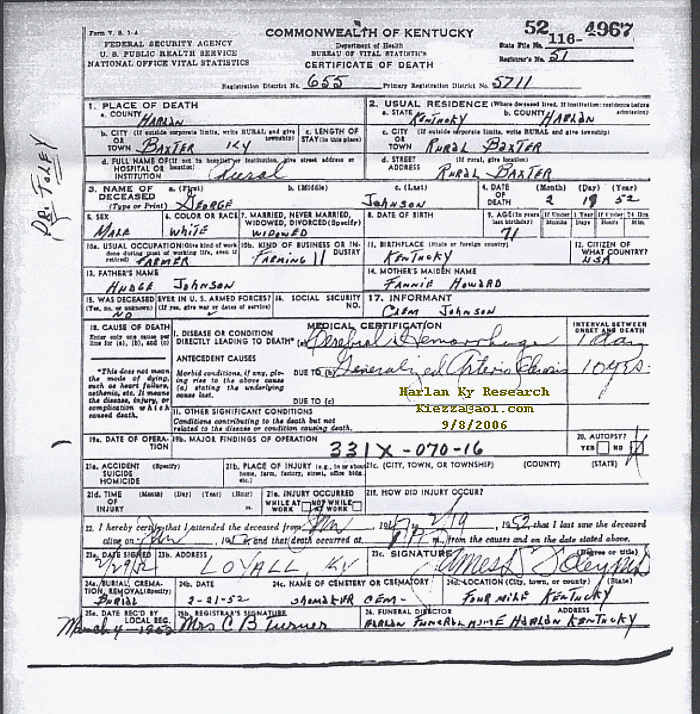 Form V. S. 1-A
FEDERAL SECURITY AGENCY
U. S. PUBLIC HEALTH SERVICE
NATIONAL OFFICE VITAL STATISTICS
COMMONWEALTH OF KENTUCKY
Department of Health
BUREAU OF VITAL STATISTICS
CERTIFICATE OF DEATH
52 116- 4967
State File No.
Registrar's No. 51
Registration District No. 655 Primary Registration District No. 5711
DR. FOLEY
1. PLACE OF DEATH
a. COUNTY HARLAN
2. USUAL RESIDENCE (Where deceased lived. If institution: residence before admission)
a. STATE KENTUCKY b. COUNTY HARLAN
b. CITY (If outside corporate limits, write RURAL and give township) OR TOWN BAXTER KY
c. LENGTH OF STAY (in this place)
c. CITY (If outside corporate limits, write RURAL and give township) OR TOWN RURAL BAXTER
d. FULL NAME OF (If not in hospital or institution, give street address or location) HOSPITAL OR INSTITUTION Rural
d. STREET ADDRESS (If rural, give location) RURAL BAXTER
3. NAME OF DECEASED (Type or Print) a. (First) GEORGE b. (Middle) c. (Last) JOHNSON
4. DATE OF DEATH (Month) (Day) (Year) 2 19 52
5. SEX MALE
6. COLOR OR RACE WHITE
7. MARRIED, NEVER MARRIED, WIDOWED, DIVORCED (Specify) WIDOWED
8. DATE OF BIRTH
9. AGE (In years last birthday) 71 If Under 1 Year Months Days If Under 24 Hrs Hours Min.
10a. USUAL OCCUPATION (Give kind of work done during most of working life, even if retired) FARMER
10b. KIND OF BUSINESS OR INDUSTRY FARMING 11
11. BIRTHPLACE (State or foreign country) KENTUCKY
12. CITIZEN OF WHAT COUNTRY? USA
13. FATHER'S NAME HUDGE JOHNSON
14. MOTHER'S MAIDEN NAME FANNIE HOWARD
15. WAS DECEASED EVER IN U. S. ARMED FORCES? (Yes, no, or unknown) (If yes, give war or dates of service) NO
16. SOCIAL SECURITY NO.
17. INFORMANT CLEM JOHNSON
18. CAUSE OF DEATH
Enter only one cause per line for (a), (b), and (c)
*This does not mean the mode of dying, such as heart failure, asthenia, etc. It means the disease, injury, or complication which caused death.
MEDICAL CERTIFICATION
INTERVAL BETWEEN ONSET AND DEATH
I. DISEASE OR CONDITION DIRECTLY LEADING TO DEATH* (a) Cerebral Hemorrhage 1 day
ANTECEDENT CAUSES
Morbid conditions, if any, giving rise to the above cause (a) stating the underlying cause last.
DUE TO (b) Generalized Arterio Sclerosis 10 yrs.
DUE TO (c)
Harlan Ky Research
Kiezza@aol.com
9/8/2006
II. OTHER SIGNIFICANT CONDITIONS
Conditions contributing to the death but not related to the disease or condition causing death.
19a. DATE OF OPERATION
19b. MAJOR FINDINGS OF OPERATION
331X-070-16
20. AUTOPSY? YES NO
21a. ACCIDENT SUICIDE HOMICIDE (Specify)
21b. PLACE OF INJURY (e.g., in or about home, farm, factory, street, office bldg. etc.)
21c. (CITY, TOWN, OR TOWNSHIP) (COUNTY) (STATE)
21d. TIME OF INJURY (Month) (Day) (Year) (Hour) m.
21e. INJURY OCCURRED WHILE AT WORK NOT WHILE AT WORK
21f. HOW DID INJURY OCCUR?
22. I hereby certify that I attended the deceased from Jan, 19 to 2/19, 1952 that I last saw the deceased
alive on Jan, 1952 and that death occurred at m., from the causes and on the date stated above.
23a. DATE SIGNED 2/29/52
23b. ADDRESS LOYALL, KY
23c. SIGNATURE James S. Foley MD (Degree or title)
24a. BURIAL, CREMATION, REMOVAL (Specify) BURIAL
24b. DATE 2-21-52
24c. NAME OF CEMETERY OR CREMATORY SHOMAKER CEM-
24d. LOCATION (City, town, or county) (State) FOUR MILE KENTUCKY
25a. DATE REC'D BY LOCAL REG. March 4-1952
25b. REGISTRAR'S SIGNATURE Mrs C B Turner
26. FUNERAL DIRECTOR ADDRESS HARLAN FUNERAL HOME HARLAN KENTUCKY